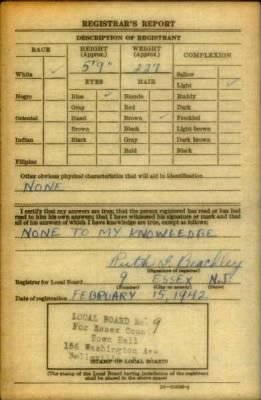 REGISTRAR'S REPORT
DESCRIPTION OF REGISTRANT
RACE HEIGHT (Approx.) WEIGHT (Approx.) COMPLEXION
5'9" 227
White ✓ Sallow
EYES HAIR Light ✓
Negro Blue ✓ Blonde Ruddy
Gray Red Dark
Oriental Hazel Brown ✓ Freckled
Brown Black Light brown
Indian Black Gray Dark brown
Bald Black
Filipino
Other obvious physical characteristics that will aid in identification
NONE
I certify that my answers are true; that the person registered has read or has had
read to him his own answers; that I have witnessed his signature or mark and that
all of his answers of which I have knowledge are true, except as follows:
NONE TO MY KNOWLEDGE
Ruth Beachley
(Signature of registrar)
Registrar for Local Board 9 ESSEX N.J.
Date of registration FEBRUARY 15, 1942
LOCAL BOARD No. 9
For Essex
Town Hall
Washington Ave
STAMP OF LOCAL BOARD
(The stamp of the Local Board having jurisdiction of the registrant
shall be placed in the above space)